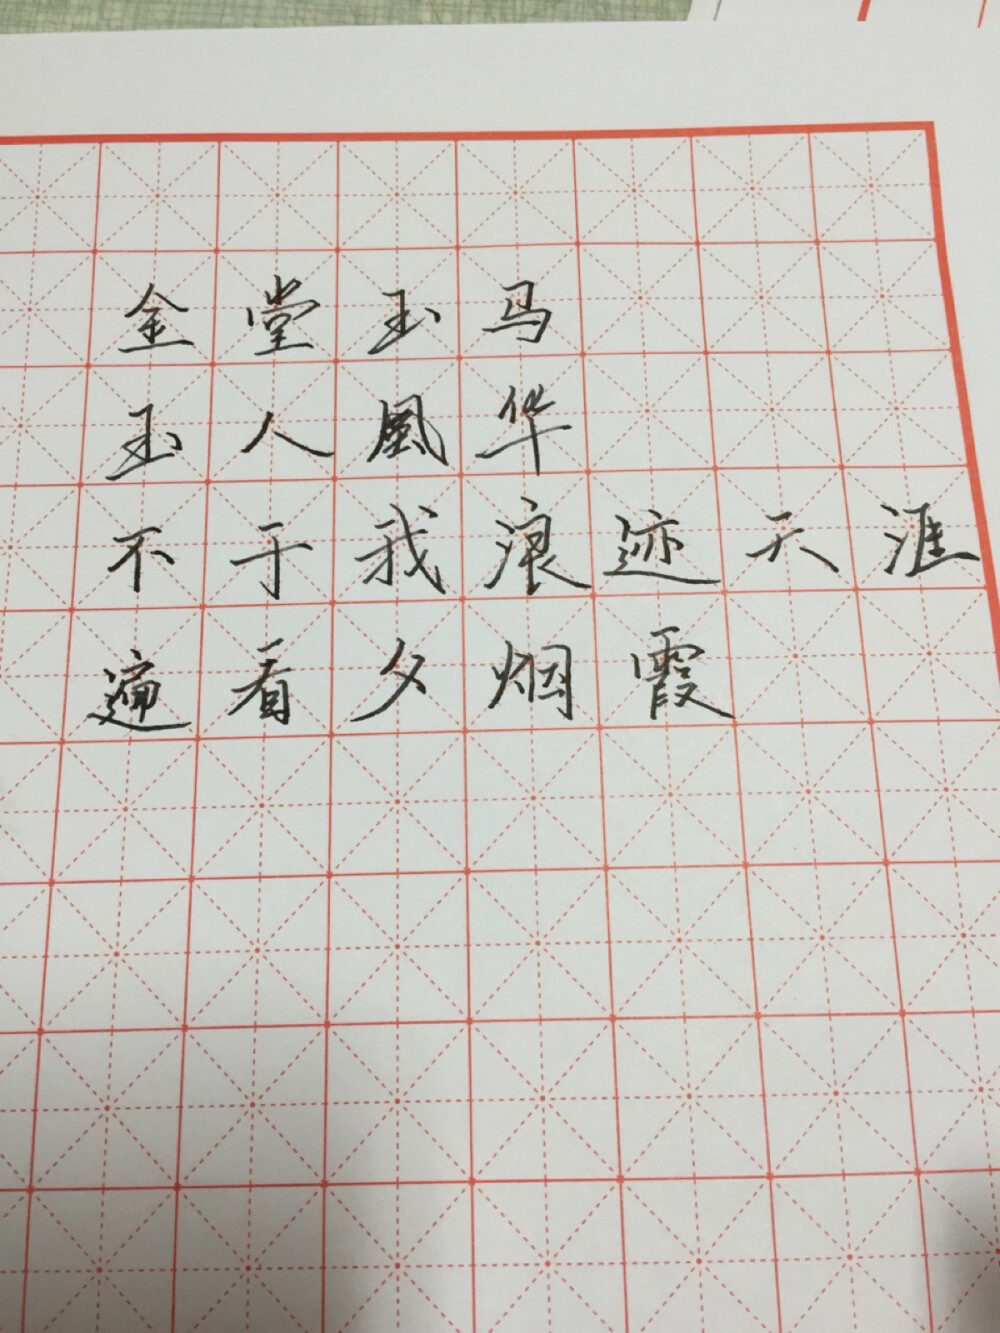 金堂玉马
玉人風华
不于我浪迹天涯
遍看夕烟霞